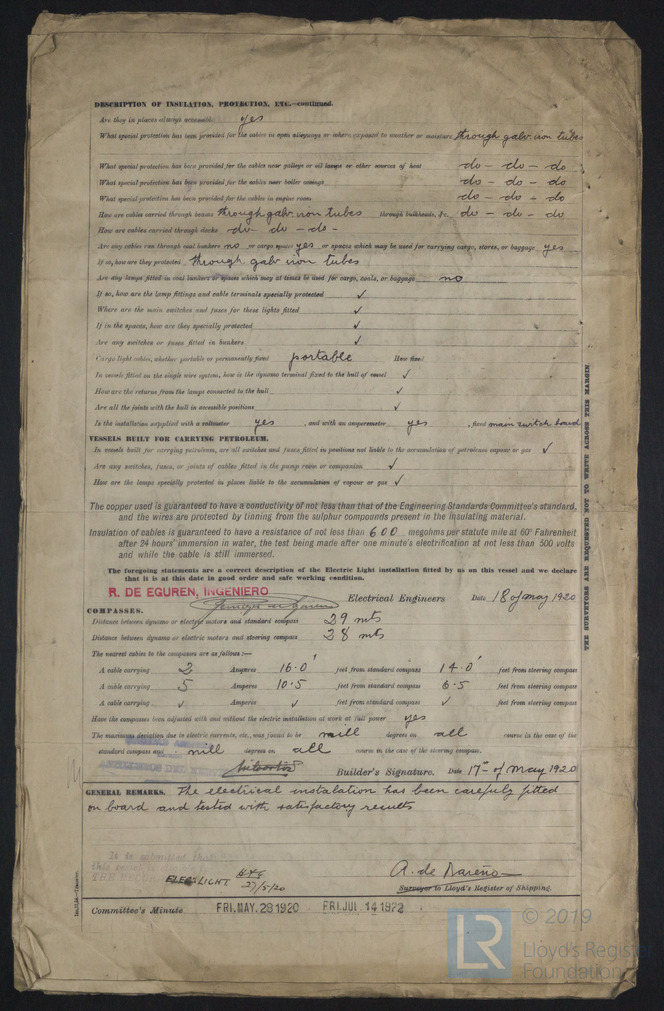 DESCRIPTION OF INSULATION, PROTECTION, ETC.—continued.
Are they in places always accessible yes
What special protection has been provided for the cables in open alleyways or where exposed to weather or moisture through galv iron tubes
What special protection has been provided for the cables near galleys or oil lamps or other sources of heat do - do - do
What special protection has been provided for the cables near boiler casings do - do - do
What special protection has been provided for the cables in engine room do - do - do
How are cables carried through beams through galv iron tubes through bulkheads, &c. do - do - do
How are cables carried through decks do - do - do -
Are any cables run through coal bunkers no or cargo spaces yes or spaces which may be used for carrying cargo, stores, or baggage yes
If so, how are they protected through galv iron tubes
Are any lamps fitted in coal bunkers or spaces which may at times be used for cargo, coals, or baggage no
If so, how are the lamp fittings and cable terminals specially protected ✓
Where are the main switches and fuses for these lights fitted ✓
If in the spaces, how are they specially protected ✓
Are any switches or fuses fitted in bunkers ✓
Cargo light cables, whether portable or permanently fixed portable How fixed
In vessels fitted on the single wire system, how is the dynamo terminal fixed to the hull of vessel ✓
How are the returns from the lamps connected to the hull ✓
Are all the joints with the hull in accessible positions ✓
Is the installation supplied with a voltmeter yes , and with an amperemeter yes , fixed main switch board
VESSELS BUILT FOR CARRYING PETROLEUM.
In vessels built for carrying petroleum, are all switches and fuses fitted in positions not liable to the accumulation of petroleum vapour or gas ✓
Are any switches, fuses, or joints of cables fitted in the pump room or companion ✓
How are the lamps specially protected in places liable to the accumulation of vapour or gas ✓
The copper used is guaranteed to have a conductivity of not less than that of the Engineering Standards Committee's standard,
and the wires are protected by tinning from the sulphur compounds present in the insulating material.
Insulation of cables is guaranteed to have a resistance of not less than 600 megohms per statute mile at 60° Fahrenheit
after 24 hours' immersion in water, the test being made after one minute's electrification at not less than 500 volts
and while the cable is still immersed.
The foregoing statements are a correct description of the Electric Light installation fitted by us on this vessel and we declare
that it is at this date in good order and safe working condition.
R. DE EGUREN, INGENIERO
Electrical Engineers Date 18 of may 1920
COMPASSES.
Distance between dynamo or electric motors and standard compass 29 mts
Distance between dynamo or electric motors and steering compass 28 mts
The nearest cables to the compasses are as follows:—
A cable carrying 2 Amperes 16.0' feet from standard compass 14.0' feet from steering compass
A cable carrying 5 Amperes 10.5 feet from standard compass 6.5 feet from steering compass
A cable carrying ✓ Amperes ✓ feet from standard compass ✓ feet from steering compass
Have the compasses been adjusted with and without the electric installation at work at full power yes
The maximum deviation due to electric currents, etc., was found to be nill degrees on all course in the case of the
standard compass and nill degrees on all course in the case of the steering compass.
Builder's Signature. Date 17th of May 1920
GENERAL REMARKS. The electrical instalation has been carefuly fitted
on board and tested with satisfactory results
It is submitted that
this
ELEC LIGHT.
27/5/20
A. de
Surveyor to Lloyd's Register of Shipping.
Committee's Minute FRI. MAY. 28 1920 FRI. JUL. 14 1922
THE SURVEYORS ARE REQUESTED NOT TO WRITE ACROSS THIS MARGIN.
LR
© 2019
Lloyd's Register
Foundation